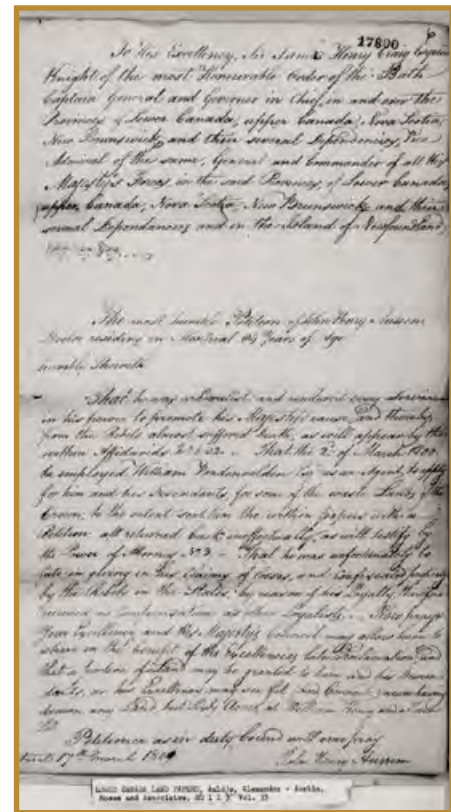 17800
To His Excellency, Sir James Henry Craig
Knight of the most Honourable Order of the Bath
Captain General and Governor in Chief, in and over the
Provinces of Lower Canada, upper Canada, Nova Scotia,
New Brunswick, and their several Dependencies, Vice
Admiral of the same, General and Commander of all His
Majesty's Forces in the said Provinces, of Lower Canada,
upper Canada, Nova Scotia, New Brunswick, and their
several Dependancies and in the Island of Newfoundland,
The most humble Petition of John Henry
Doctor residing in Montreal Years of Age
humbly Sheweth
That he was a Loyalist and rendered every Service
in his power to promote his Majesty's cause, and thereby
from the Rebels almost suffered Death, as will appear by the
within Affidavids No 1 & 2. - That the 2d of March
he employed William Vondenvelden as an Agent, to apply
for him and his Descendants for some of the waste Lands of the
Crown; to the extent sent him the within Papers with a
Petition all returned back ineffectually, as will testify by
the Power of Attorney No 3 - That he was unfortunately to
late in giving in his of Losses, and Confiscated
by the Rebels in the States, by reason of his Loyalty, therefore
received no Compensation as other Loyalists. - Now prays
Your Excellency and His Majesty's Council may allow him to
share in the benefit of the Excellencies late Proclamation, and
that a portion of Land may be granted to him and his
as his Excellency may see fit and never having
drawn any Land but Sixty Acres at William Henry
Petitioner as in duty bound will ever pray
17th March
John Henry
LOWER CANADA LAND PAPERS, Auldjo, Alexander - Austin,
Moses and Associates, RG 1 L 3 Vol. 35